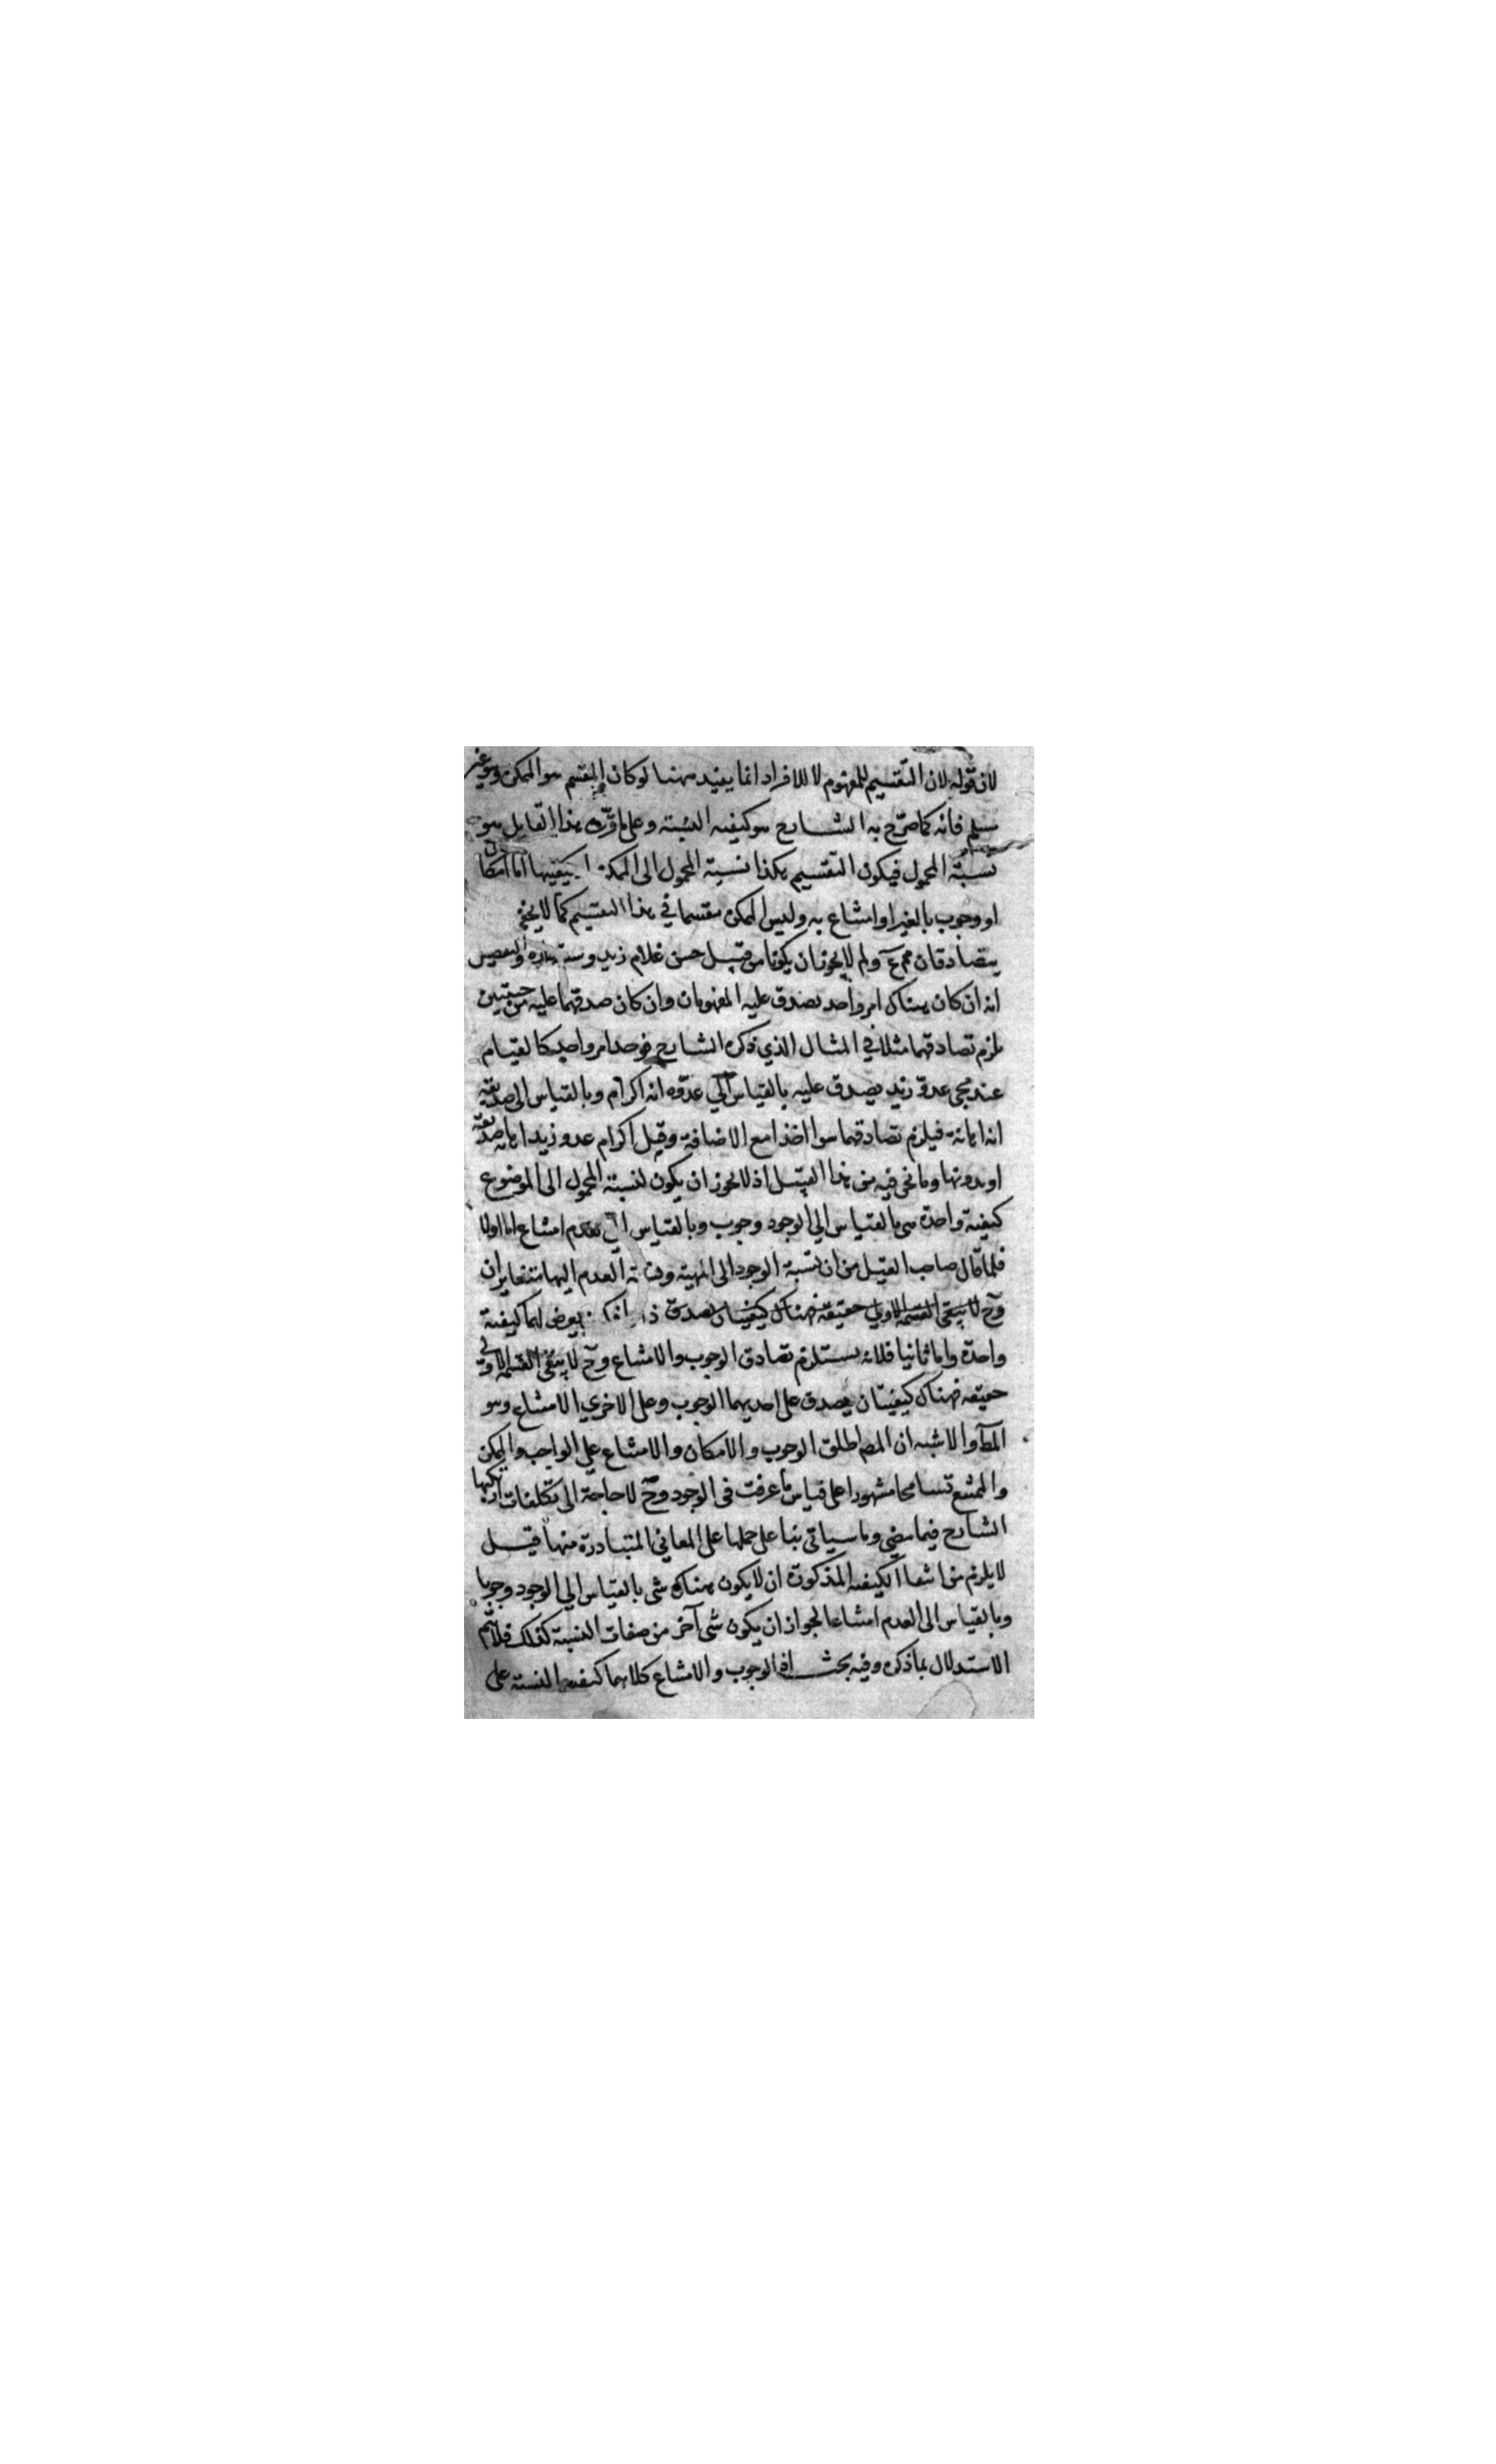 لان قوله لان التقسيم للمفهوم لا للافراد انما يفيد ههنا لو كان المقسم هو الممكن وهو غير
مسلم فانه كما صرّح به الشارح هو كيفيه النسبة وعلى ما قرّره هذا القايل هو
نسبة المحمول فيكون التقسيم هكذا نسبة المحمول الى الممكن كيفيتها اما امكان
او وجوب بالغير او امتناع به وليس الممكن مقسما في هذا التقسيم كما لا يخفى
يتصادقان مم ولم لا يجوز ان يكونا من قبيل حسن غلام زيد و والتفصيل
انه ان كان هناك امر واحد يصدق عليه المفهومان وان كان صدقهما عليه من حيثيتين
يلزم تصادقهما مثلا في المثال الذي ذكره الشارح يوجد امر واحد كالقيام
عند مجي عدوّ زيد يصدق عليه بالقياس الي عدوّه انه اكرام وبالقياس الى صديقه
انه اهانة فيلزم تصادقهما سوا اخذا مع الاضافة وقيل اكرام عدو زيد اهانه صديقه
او بدونها وما نحن فيه من هذا القبيل اذ لا يجوز ان يكون لنسبة المحمول الى الموضوع
كيفية واحدة هي بالقياس الي الوجود وجوب وبالقياس الي العدم امتناع اما اولا
فلما قال صاحب القيل من ان نسبة الوجود الى المهية ونسبة العدم اليها متغايران
وح لا يبقى القسمة الاولي حقيقة فهناك كيفيتان يصدق يعرض لهما كيفية
واحدة واما ثانيا فلانه يستلزم تصادق الوجوب والامتناع وح لا يبقى القسمة الاولى
حقيقه فهناك كيفيتان يصدق على احديهما الوجوب وعلى الاخري الامتناع وهو
المط والاشبه ان المص اطلق الوجوب والامكان والامتناع علي الواجب والممكن
والممتنع تسامحا مشهورا على قياس ما عرفت في الوجود وح لا حاجة الى تكلفات ارتكبها
الشارح فيما مضي وما سياتي بنا على حملها على المعاني المتبادرة منها قيل
لا يلزم من انتفا الكيفيه المذكورة ان لا يكون هناك شي بالقياس الي الوجود وجوبا
وبالقياس الى العدم امتناعا لجواز ان يكون شي آخر من صفات النسبة كذلك فلا يتم
الاستدلال بما ذكره وفيه بحث اذ الوجوب والامتناع كلاهما كيفيه النسبة على